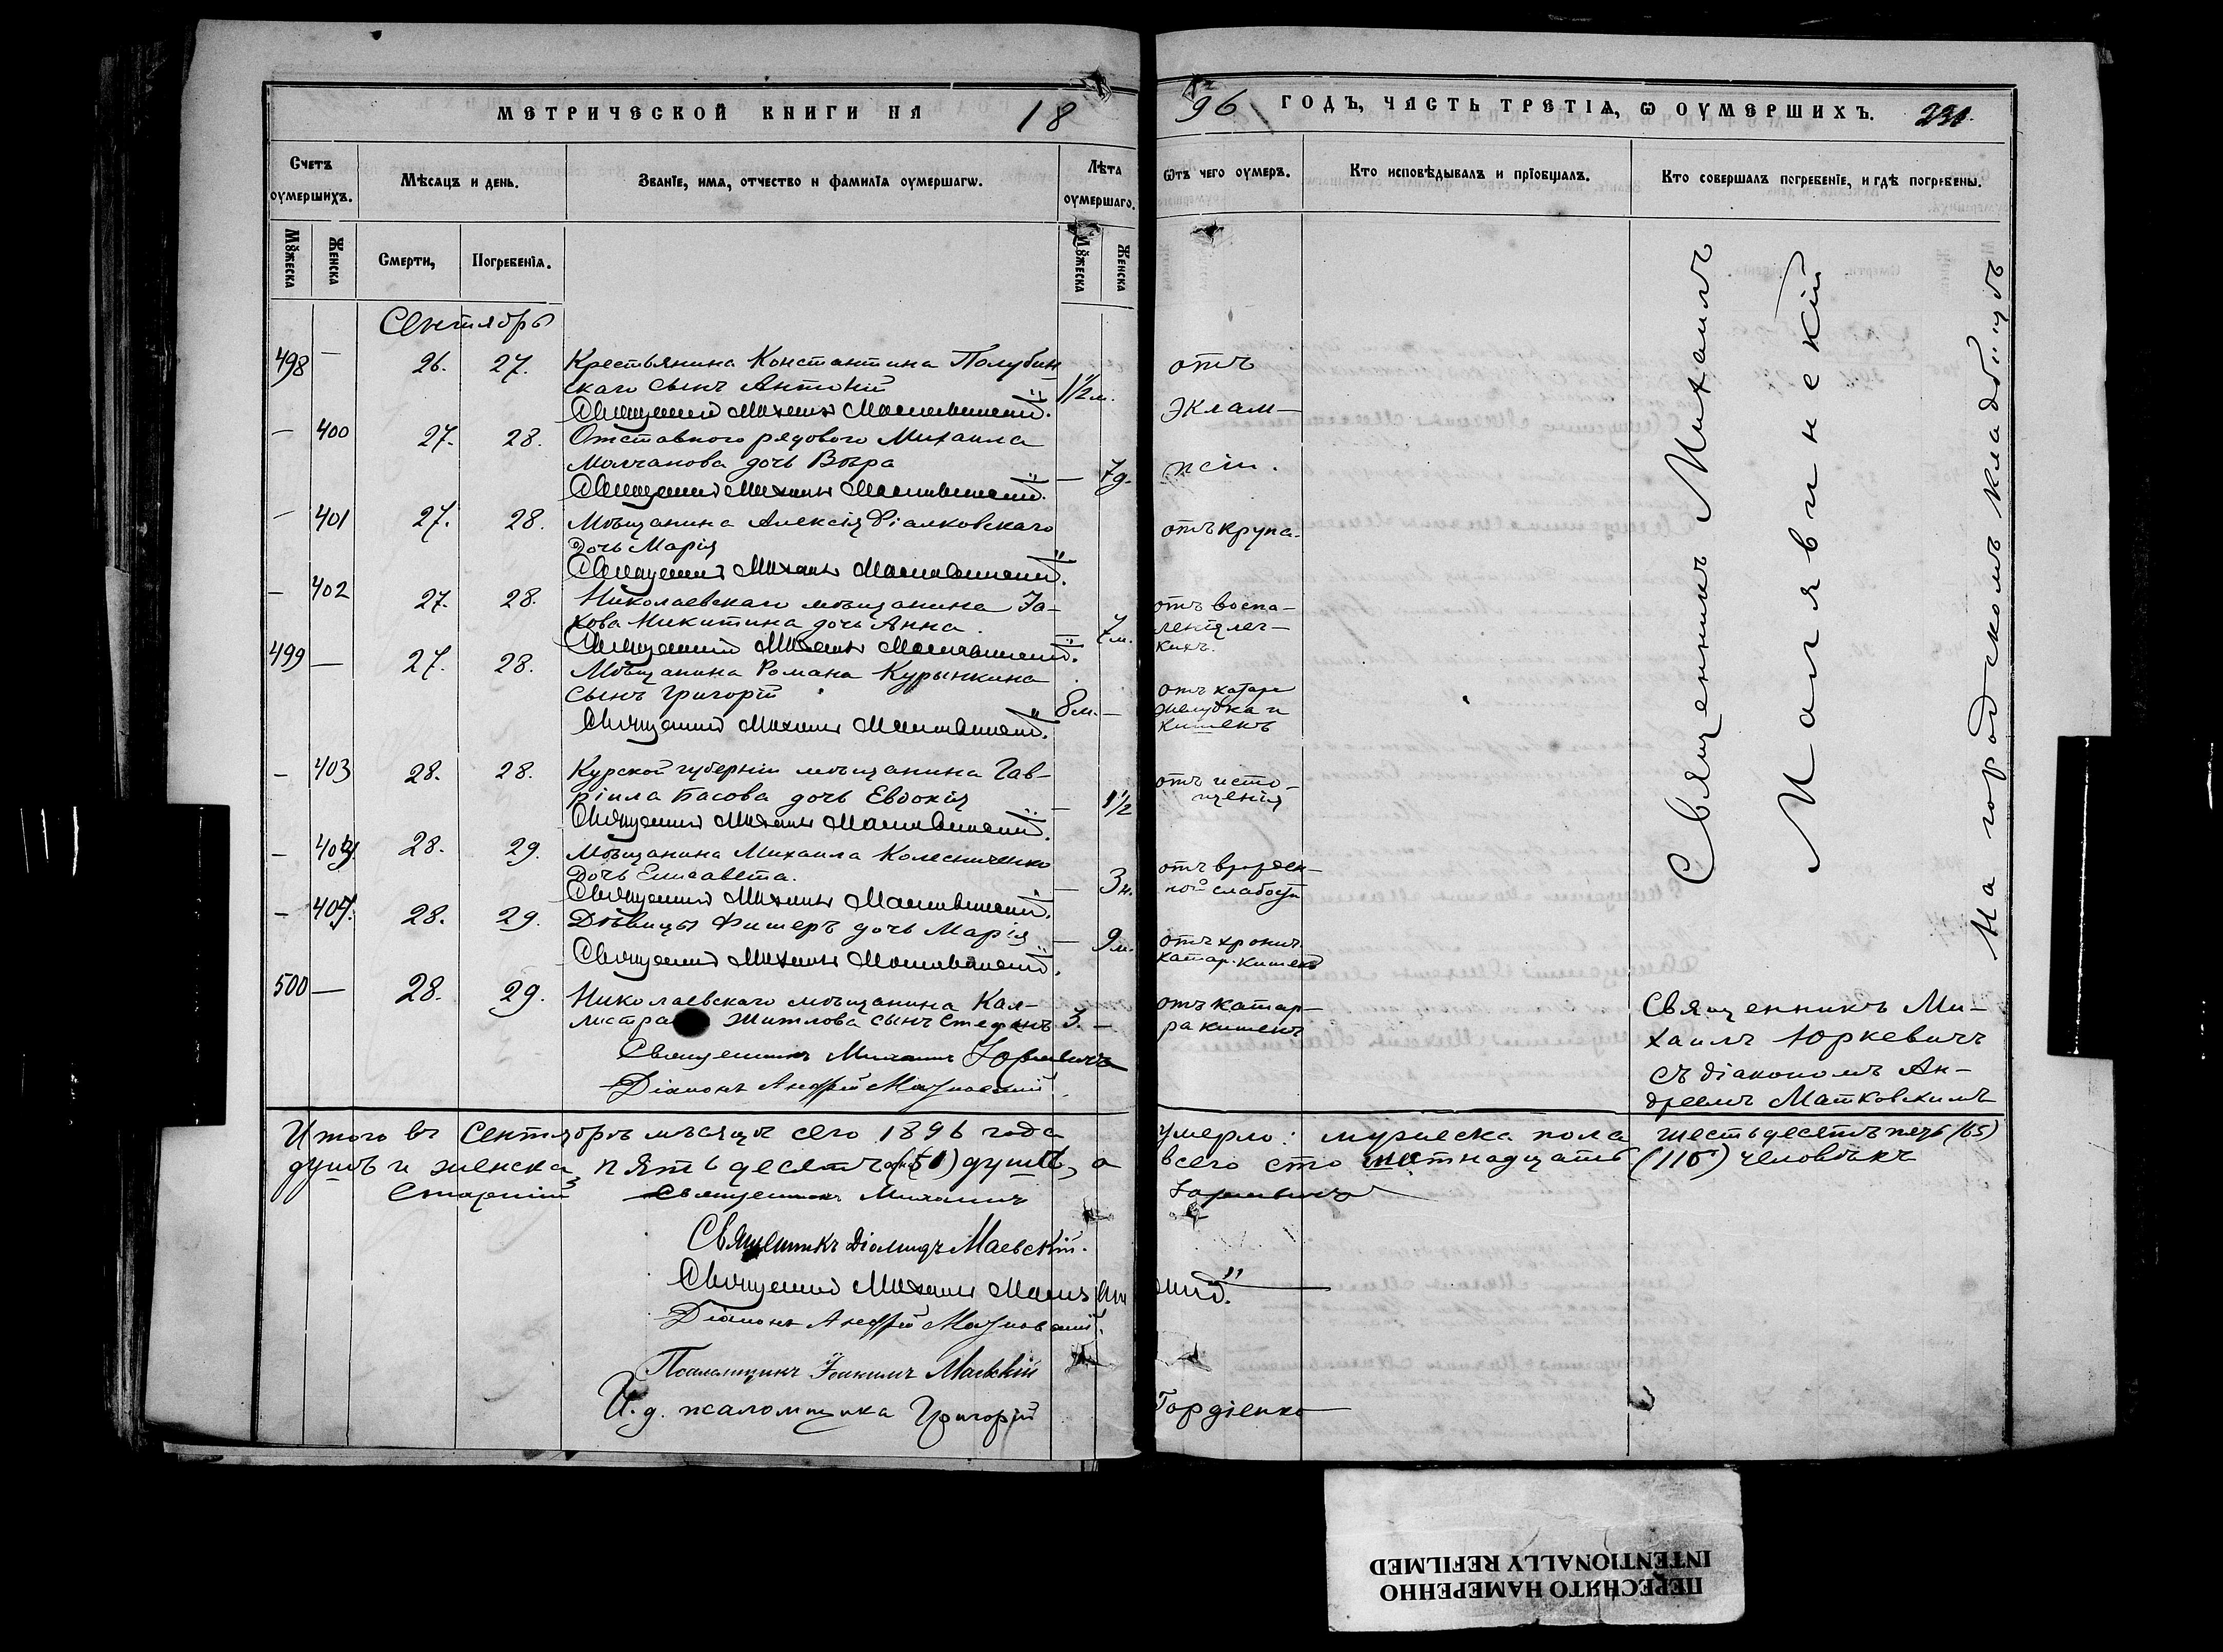 МЕТРИЧЕСКОЙ КНИГИ НА 18
96 ГОДЪ, ЧАСТЬ ТРЕТІѦ, Ѡ ОУМЕРШИХЪ. 231.
Счетъ оумершихъ.
Мѣсѧцъ и день.
Званїе, имѧ, отчество и фамилїѧ оумершагѡ.
Лѣта оумершаго.
Ѿтъ чего оумеръ.
Кто исповѣдывалъ и прїобщалъ.
Кто совершалъ погребенїе, и гдѣ погребены.
Мꙋжеска
Женска
Смерти,
Погребенїѧ.
Мꙋжеска
Женска
Сентябрь
498 — 26. 27. Крестьянина Константина Полубин
скаго сынъ Антоній 1½ м.
отъ
эклам-
псіи.
Священникъ Михаилъ
— 400 27. 28. Отставного рядового Михаила
Молчанова дочь Вѣра — 7 д.
Священникъ Михаилъ
— 401 27. 28. Мѣщанина Алексія Фіалковскаго
дочь Марія
отъ крупа.
Священникъ Михаилъ
— 402 27. 28. Николаевскаго мѣщанина Іа-
кова Никитина дочь Анна. — 7 м.
отъ воспа-
ленія лег-
кихъ.
Священникъ Михаилъ
499 — 27. 28. Мѣщанина Романа Курынкина
сынъ Григорій 8 м. —
отъ катара
желудка и
кишекъ
Священникъ Михаилъ
— 403 28. 28. Курской губерніи мѣщанина Гав-
ріила Басова дочь Евдокія — 1½
отъ исто-
щенія
Священникъ Михаилъ
— 404. 28. 29. Мѣщанина Михаила Колесниченко
дочь Елисавета. — 3 н.
отъ врожден-
ной слабости
Священникъ Михаилъ
— 405. 28. 29. Дѣвицы Фишеръ дочь Марія — 9 м.
отъ хронич.
катар. кишекъ
Священникъ Михаилъ
500 — 28. 29. Николаевскаго мѣщанина Кал-
листра Житлова сынъ Стефанъ 3. —
отъ катар-
ра кишекъ
Священникъ Михаилъ Юркевичъ
Діаконъ Андрей Матковскій
Священникъ Михаилъ
На городскомъ кладбищѣ
Священникъ Ми-
хаилъ Юркевичъ
съ діакономъ Ан-
дреемъ Матковскимъ
Итого въ Сентябрѣ мѣсяцѣ сего 1896 года умерло: мужеска пола шестьдесятъ пять (65)
душъ и женска пятьдесятъ душъ, а всего сто человѣкъ
Священникъ Михаилъ Юркевичъ
Священникъ Діомидъ Маевскій.
Священникъ Михаилъ
Діаконъ Андрей Матковскій.
Псаломщикъ Іоакимъ Маевскій
И. д. псаломщика Григорій Гордіенко
ПЕРЕСНЯТО НАМЕРЕННО
INTENTIONALLY REFILMED